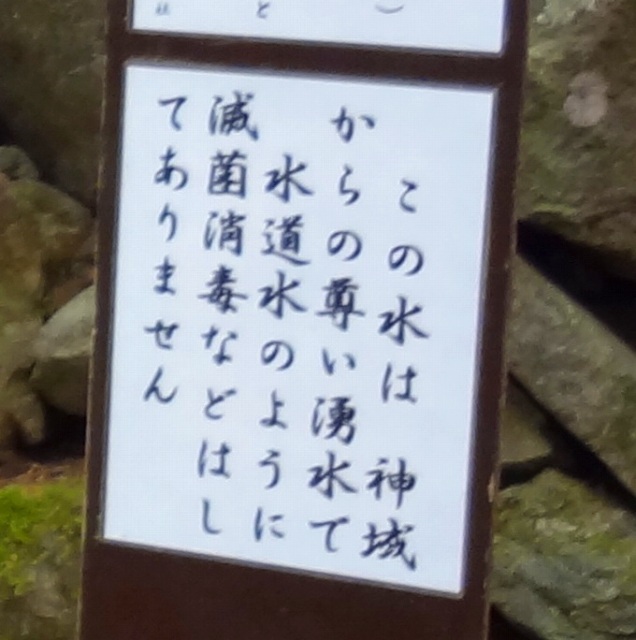 この水は 神域
からの尊い湧水で
水道水のように
滅菌消毒などはし
てありません